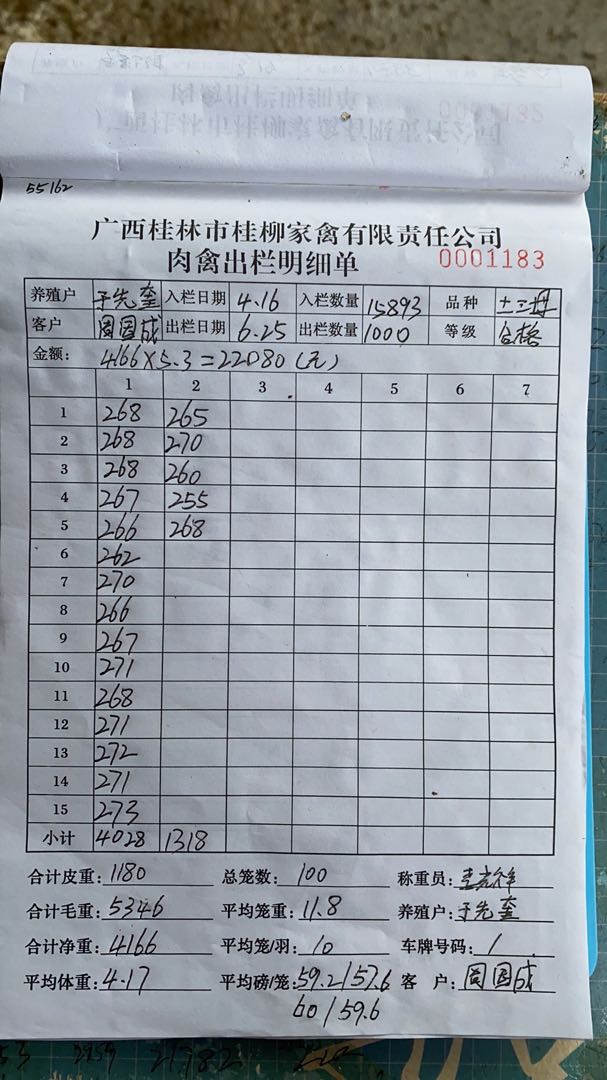 0001182
55162
广西桂林市桂柳家禽有限责任公司
肉禽出栏明细单 0001183
养殖户 于先奎 入栏日期 4.16 入栏数量 15893 品种 土二母
客户 周国成 出栏日期 6.25 出栏数量 1000 等级 合格
金额: 4166×5.3=22080(元)
1 2 3 4 5 6 7
1 268 265
2 268 270
3 268 260
4 267 255
5 266 268
6 262
7 270
8 266
9 267
10 271
11 268
12 271
13 272
14 271
15 273
小计 4028 1318
合计皮重: 1180 总笼数: 100 称重员:
合计毛重: 5346 平均笼重: 11.8 养殖户: 于先奎
合计净重: 4166 平均笼/羽: 10 车牌号码: /
平均体重: 4.17 平均磅/笼: 59.2/57.6 客 户: 周国成
60/59.6